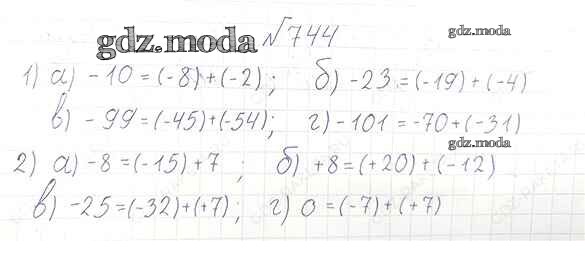 gdz.moda №744 gdz.moda
1) а) -10 = (-8)+(-2); б) -23 = (-19) + (-4)
в) - 99 = (-45)+(-54); г) -101 = -70+(-31)
gdz.moda
2) а) -8 = (-15)+7 ; б) +8 = (+20) + (-12)
в) -25 = (-32)+(+7); г) 0 = (-7)+(+7)